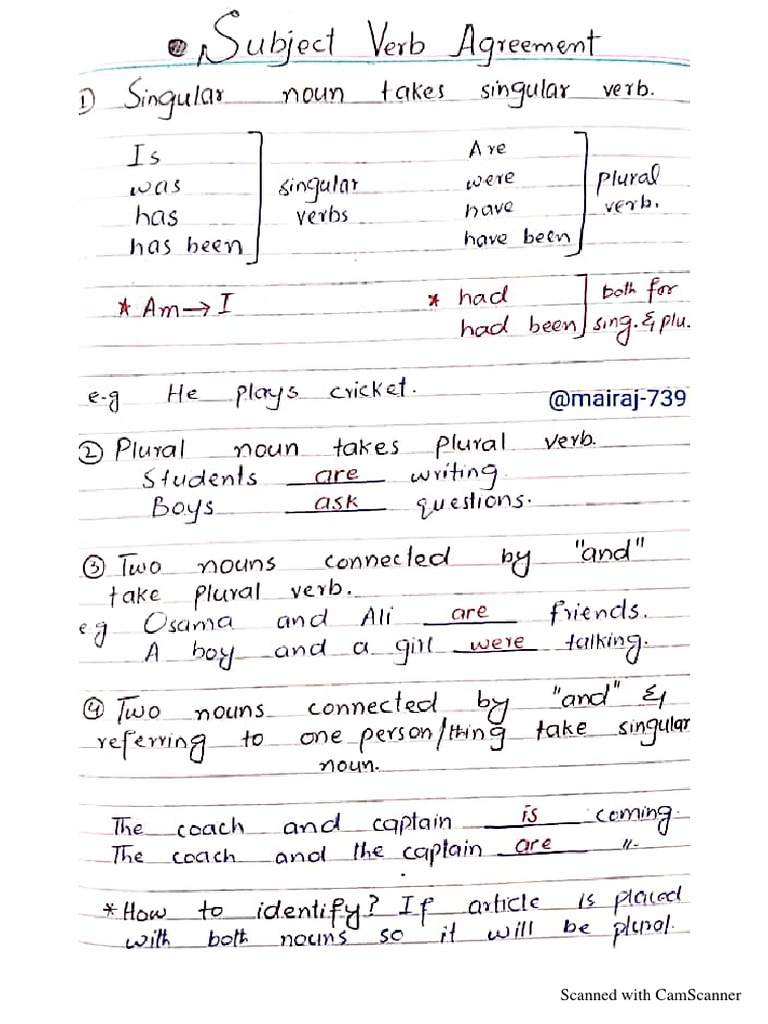 Subject Verb Agreement
1) Singular noun takes singular verb.
Is
was
has
has been
singular
verbs
Are
were
have
have been
plural
verb.
* Am → I
* had
had been
both for
sing. & plu.
e-g He plays cricket.
@mairaj-739
② Plural noun takes plural verb.
Students are writing.
Boys ask questions.
③ Two nouns connected by "and"
take plural verb.
eg Osama and Ali are friends.
A boy and a girl were talking.
④ Two nouns connected by "and" &
referring to one person/thing take singular
noun.
The coach and captain is coming.
The coach and the captain are -"-
* How to identify? If article is placed
with both nouns so it will be plural.
Scanned with CamScanner